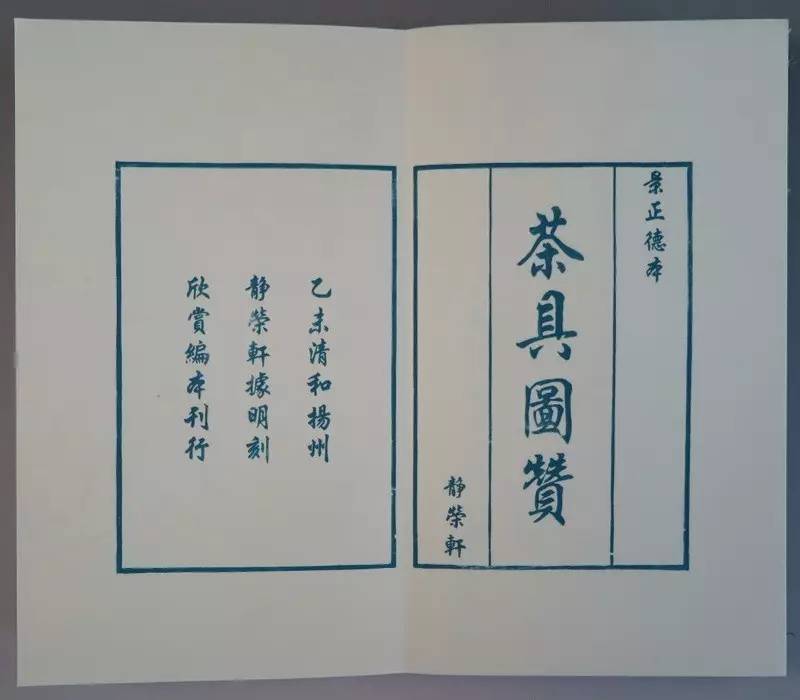 景正德本
茶具圖贊
靜榮軒
乙未清和揚州
靜榮軒據明刻
欣賞編本刊行